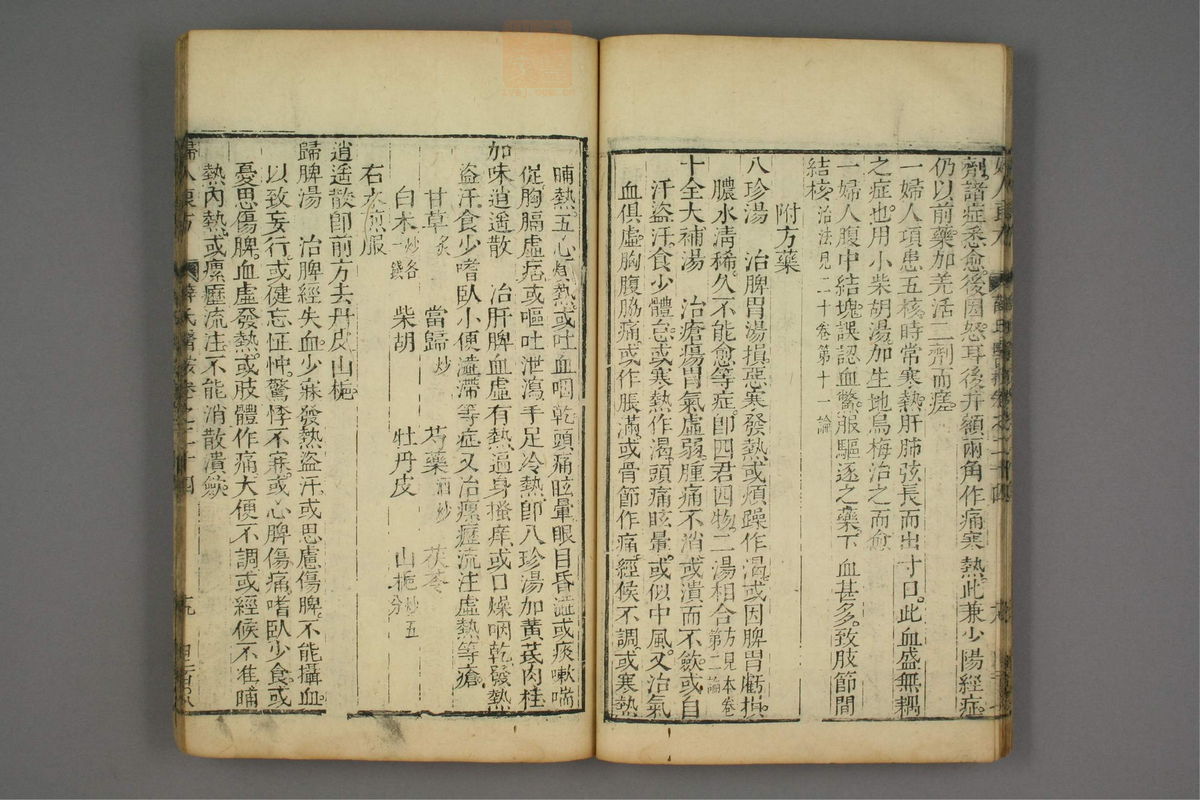 劑諸症悉愈後因怒耳後并額兩角作痛寒熱此兼少陽經症
仍以前藥加羌活二劑而瘥
一婦人項患五核時常寒熱肝肺弦長而出寸口此血盛無耦
之症也用小柴胡湯加生地烏梅治之而愈
一婦人腹中結塊誤認血鱉服驅逐之藥下血甚多致肢節間
結核治法見二十卷第十一論
附方藥
八珍湯 治脾胃湯損惡寒發熱或煩躁作渴或因脾胃虧損
膿水清稀久不能愈等症卽四君四物二湯相合方見本卷第二論
十全大補湯 治瘡瘍胃氣虛弱腫痛不消或潰而不斂或自
汗盜汗食少體倦或寒熱作渴頭痛眩暈或似中風又治氣
血俱虛胸腹脇痛或作脹滿或骨節作痛經候不調或寒熱
晡熱五心煩熱或吐血咽乾頭痛眩暈眼目昏澁或痰嗽喘
促胸膈虛痞或嘔吐泄瀉手足冷熱卽八珍湯加黃茋肉桂
加味逍遥散 治肝脾血虛有熱遍身搔痒或口燥咽乾發熱
盜汗食少嗜臥小便澁滯等症又治瘰癧流注虛熱等瘡
甘草炙 當歸炒 芍藥酒炒 茯苓
白朮炒各一錢 柴胡 牡丹皮 山梔炒五分
右水煎服
逍遥散卽前方去丹皮山梔
歸脾湯 治脾經失血少寐發熱盜汗或思慮傷脾不能攝血
以致妄行或健忘怔忡驚悸不寐或心脾傷痛嗜臥少食或
憂思傷脾血虛發熱或肢體作痛大便不調或經候不准晡
熱內熱或瘰癧流注不能消散潰斂